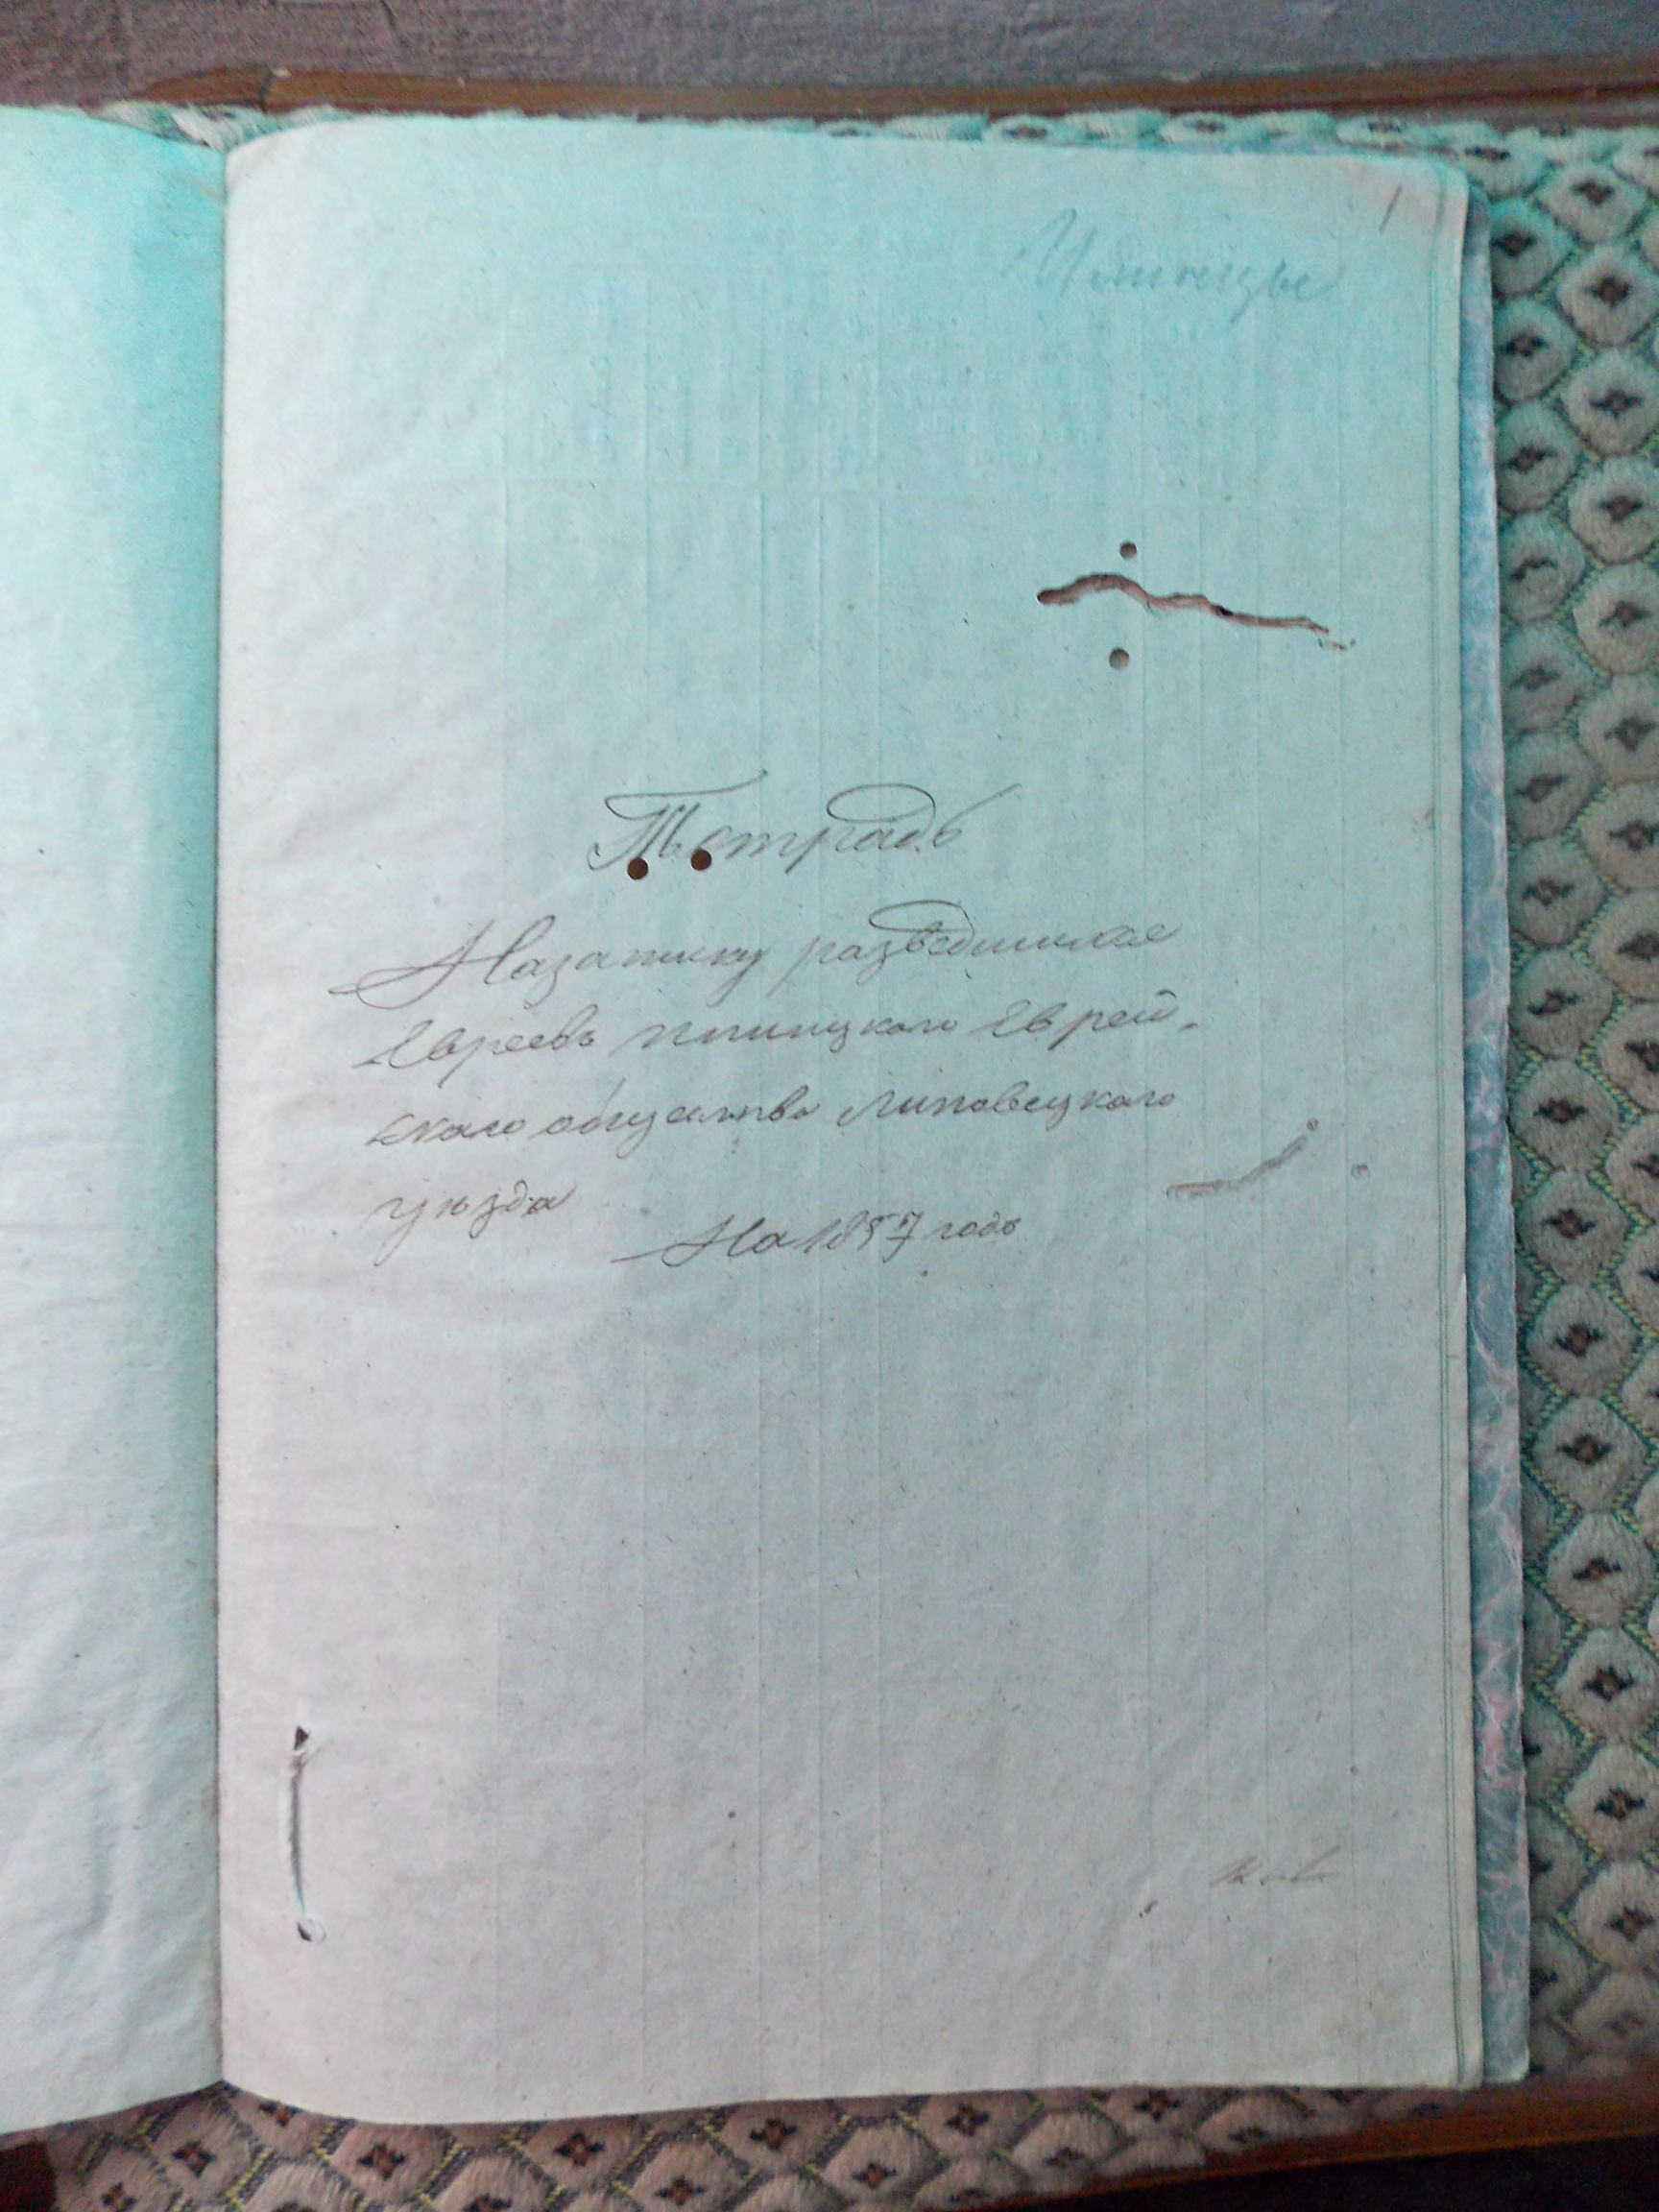 1
Илинцы
Тетрадь
Назаписку разведшихся
Евреевъ Илинцкого Еврей-
скаго общества Липовецкаго
уѣзда
На 1857 годъ